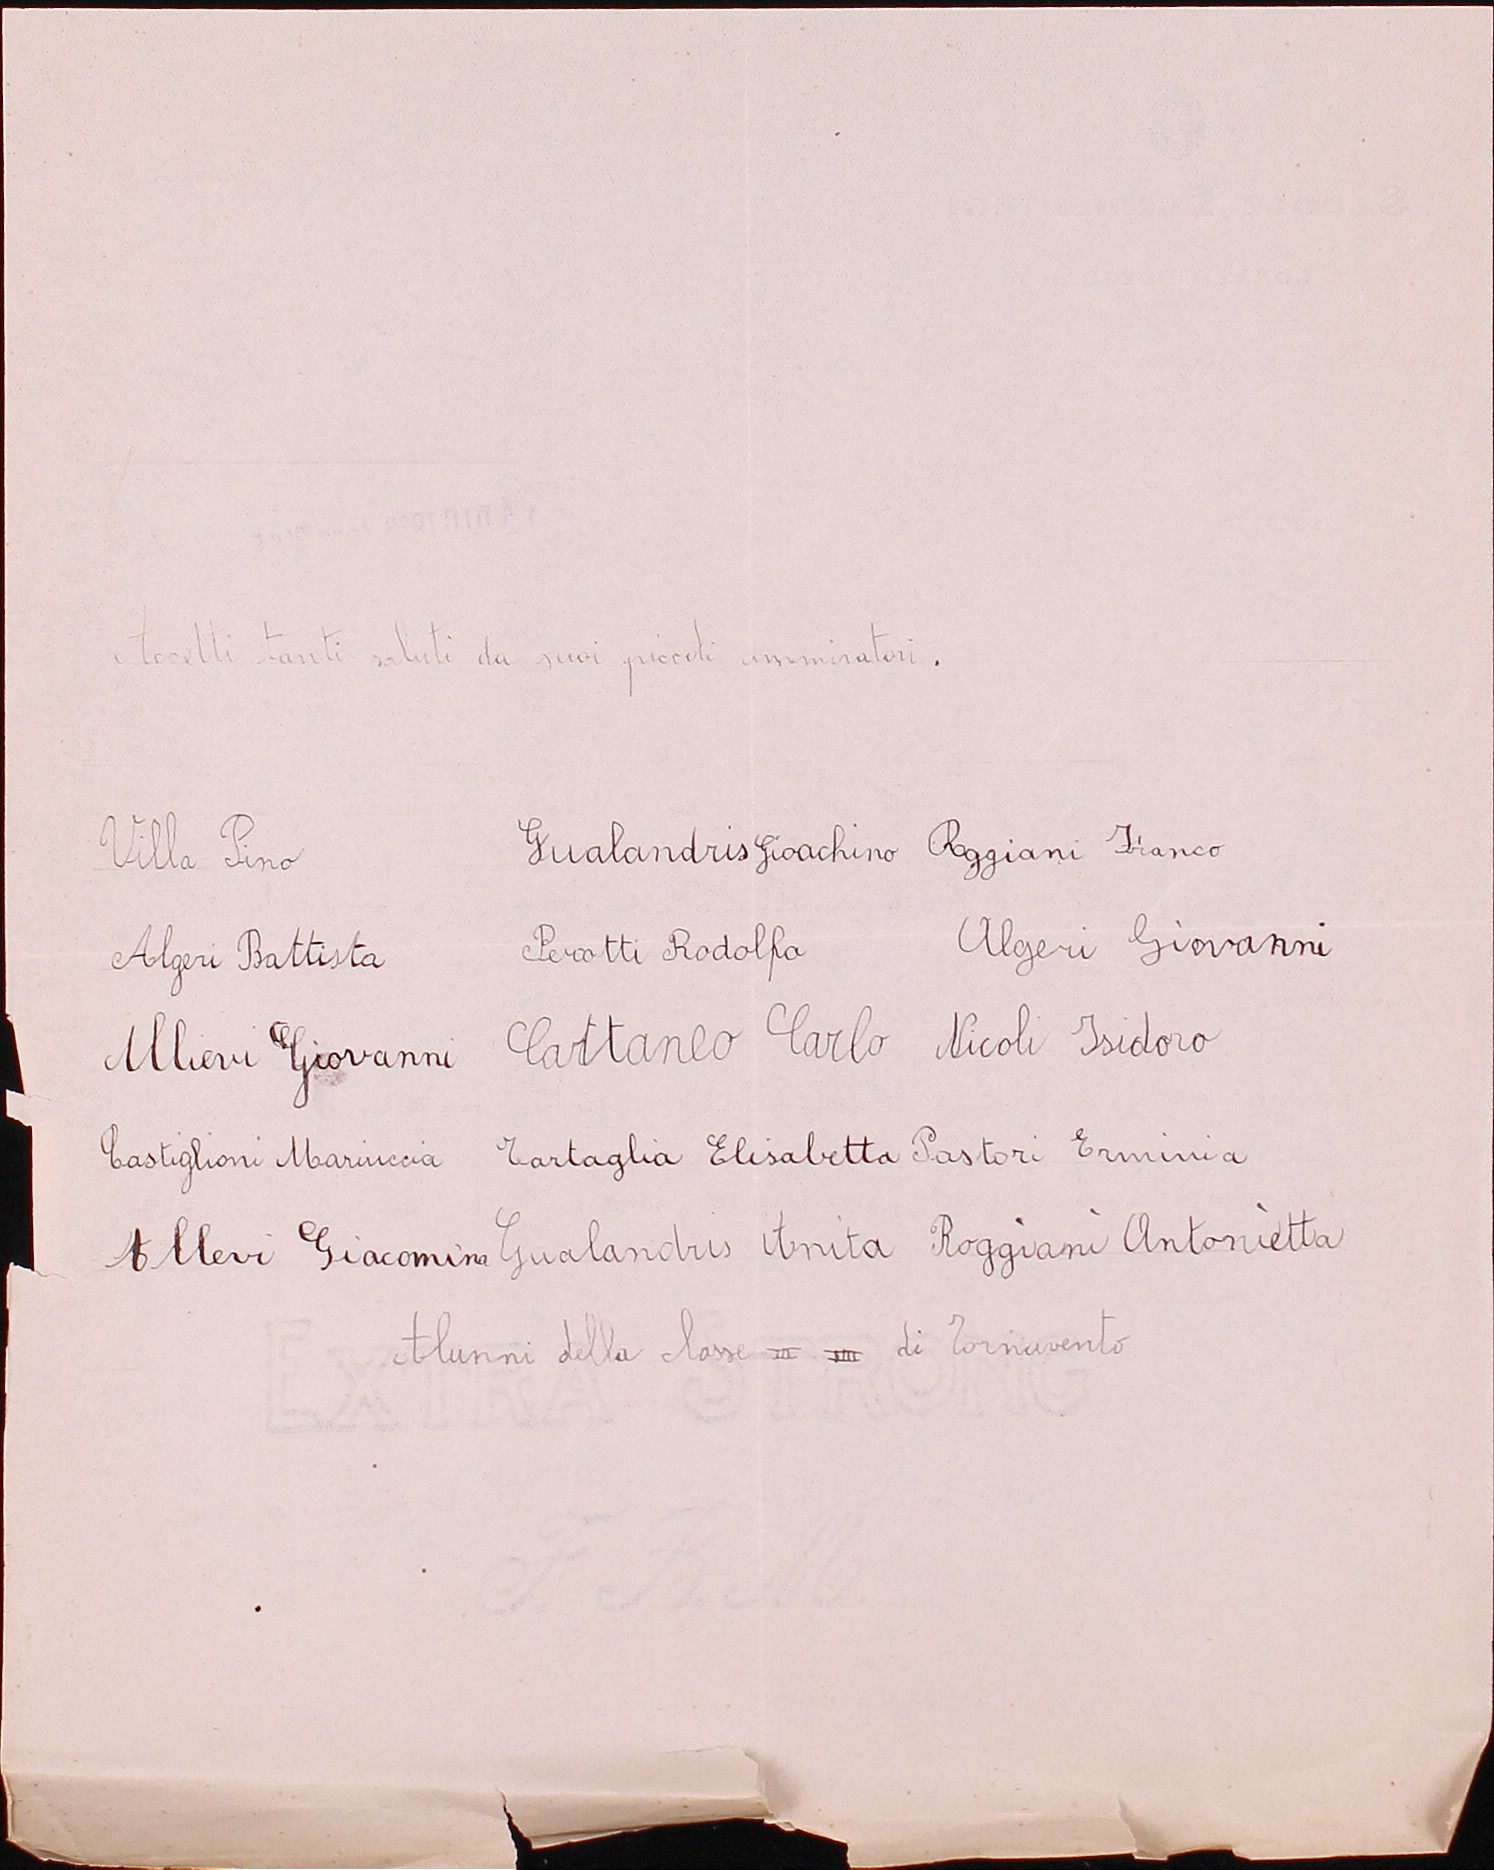 Accetti tanti saluti da suoi piccoli ammiratori.
Villa Pino Gualandris Gioachino Roggiani Franco
Algeri Battista Perotti Rodolfo Algeri Giovanni
Allievi Giovanni Cattaneo Carlo Nicoli Isidoro
Castiglioni Mariuccia Tartaglia Elisabetta Pastori Erminia
Allevi Giacomina Gualandris Anita Roggiani Antonietta
Alunni della classe di Tornavento
EXTRA STRONG
F. B. M.